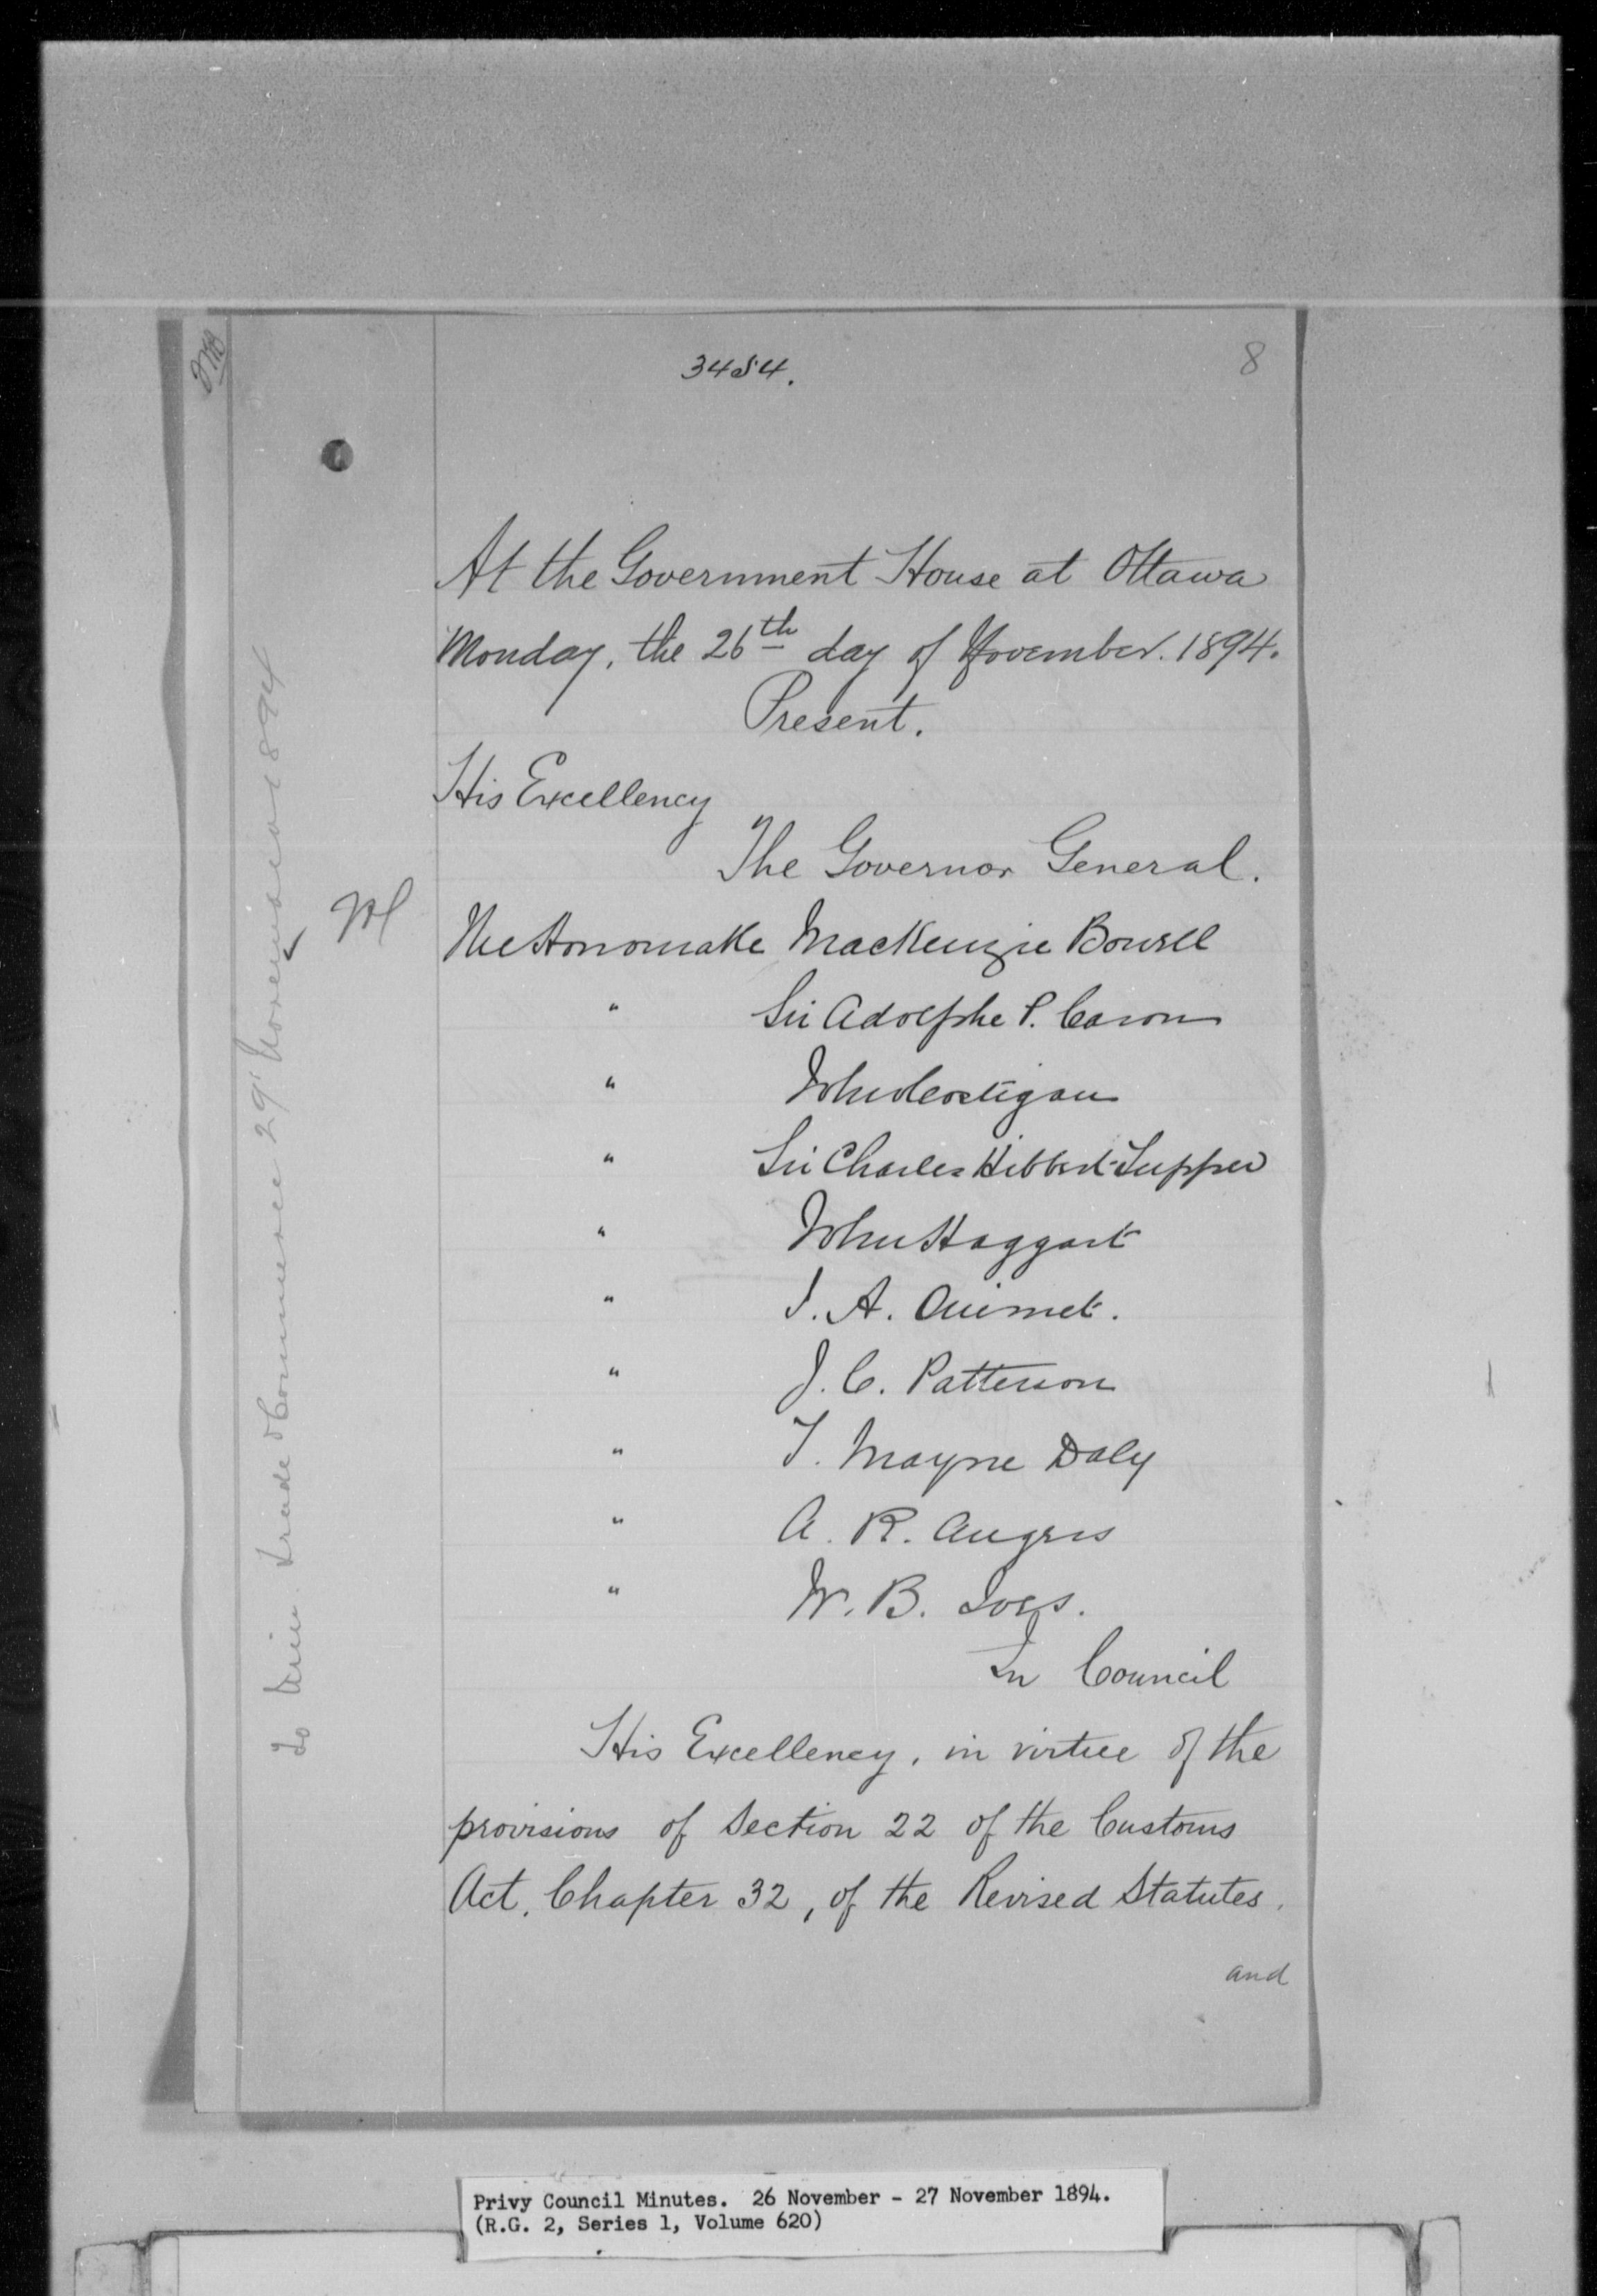 3454.
8
At the Government House at Ottawa
Monday, the 26th day of November. 1894.
Present.
His Excellency
The Governor General.
The Honorable MacKenzie Bowell
" Sir Adolphe P. Caron
" John Costigan
" Sir Charles Hibbert Tupper
" John Haggart
" J. A. Ouimet.
" J. C. Patterson
" T. Mayne Daly
" A. R. Angers
" W. B. Ives.
In Council
His Excellency, in virtue of the
provisions of Section 22 of the Customs
Act, Chapter 32, of the Revised Statutes,
and
To Min Trade & Commerce 29' November 1894
Privy Council Minutes. 26 November - 27 November 1894.
(R.G. 2, Series 1, Volume 620)